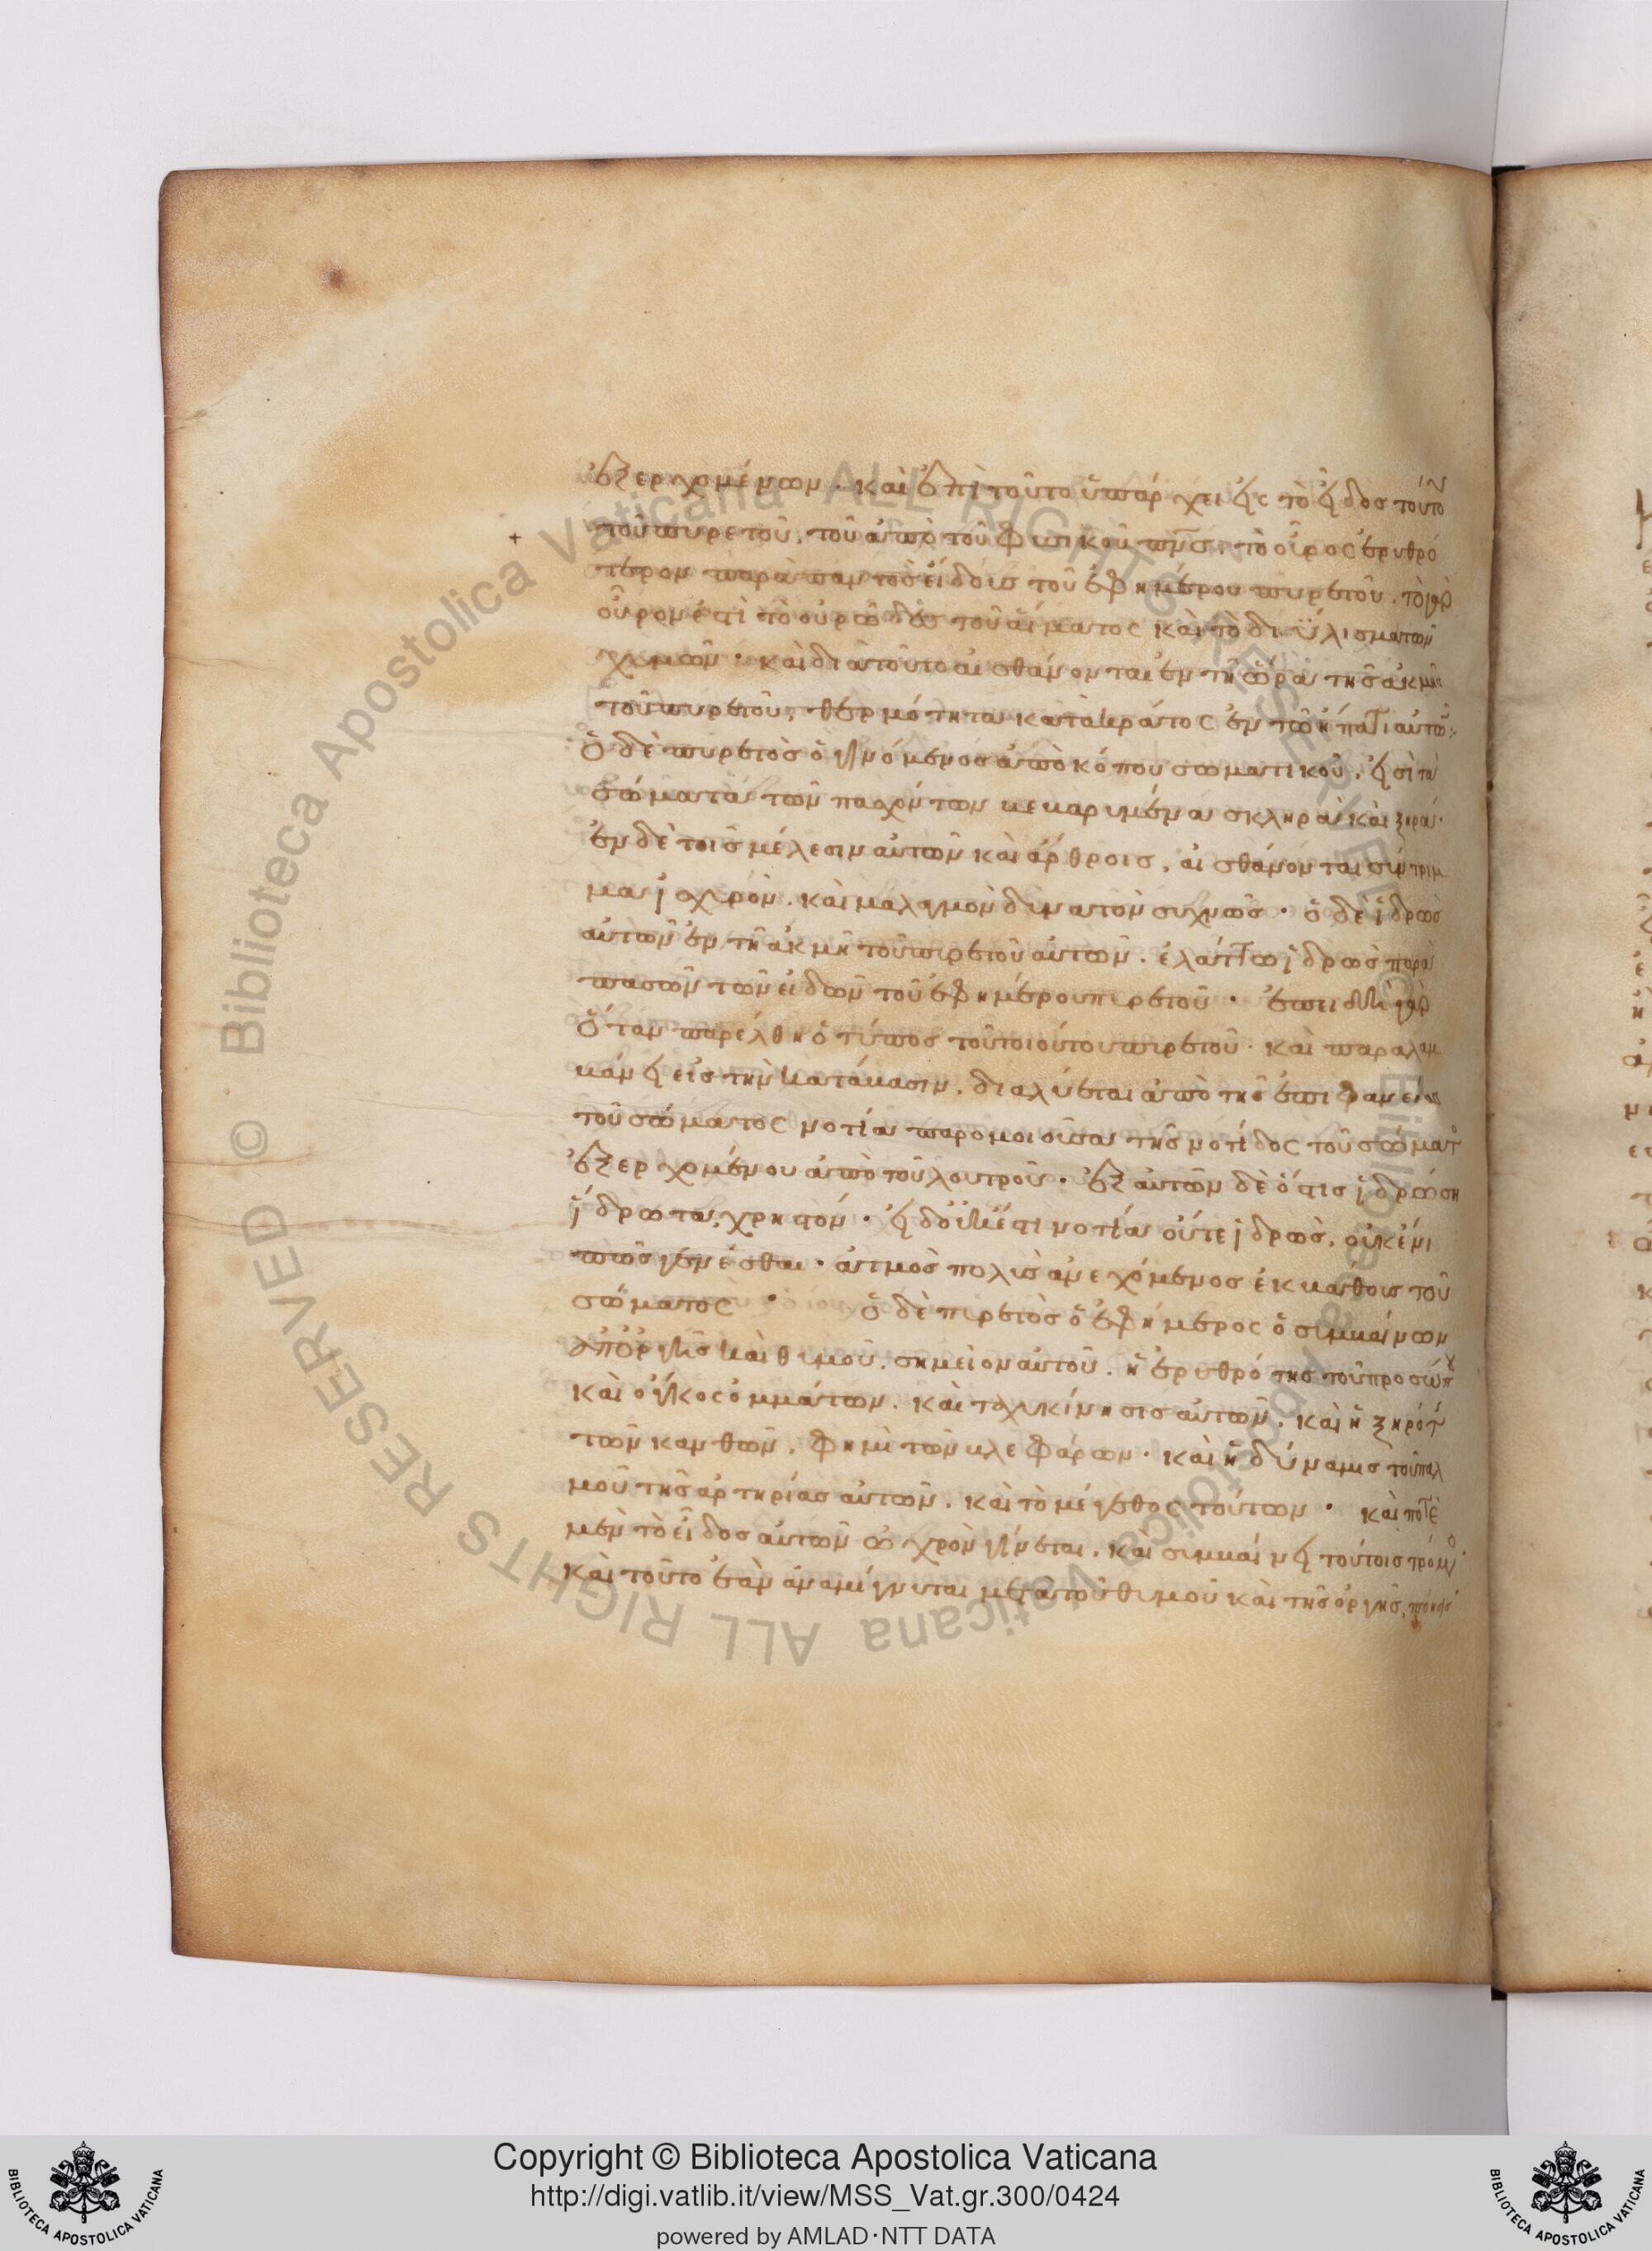 ἐξερχομένων. καὶ ἐπὶ τοῦτο ὑπάρχει εἰς τὸ εἶδος τοῦτο
τοῦ πυρετοῦ, τοῦ ἀπὸ τοῦ φυσικοῦ πν̅σ. τὸ οὖρος ἐρυθρό
τερον παρὰ παντὸς εἴδους τοῦ ἐφημέρου πυρετοῦ. τὸ γὰρ
οὖρον ἐστὶ τὸ οὐρῶδες τοῦ αἵματος καὶ τὸ διϋλισμα τῶν
χυμῶν · καὶ διατοῦτο αἰσθάνονται ἐν τῇ ὥρα τῆς ἀκμῆς
τοῦ πυρετοῦ, θερμότητα κατακράτος ἐν τῷ ἥπατι αὐτῶν:
Ὁ δὲ πυρετὸς ὁ γινόμενος ἀπὸ κόπου σωματικοῦ, εἰσὶ τὰ
σώματα τῶν πασχόντων κεκαρυμένα σκληρὰ καὶ ξηρά·
ἐν δὲ τοῖς μέλεσιν αὐτῶν καὶ ἄρθροις, αἰσθάνονται σύντριμ
μα ἰσχυρόν. καὶ μαλαγμὸν δυνατὸν συχνῶς · ὁ δὲ ἱδρὼς
αὐτῶν ἐν τῇ ἀκμῇ τοῦ πυρετοῦ αὐτῶν. ἐλάττω ἱδρὼς παρὰ
πασῶν τῶν εἰδῶν τοῦ ἐφημέρου πυρετοῦ · ἐπειδὴ γὰρ
ὅταν παρέλθη ὁ τύπος τοῦ τοιούτου πυρετοῦ. καὶ παραλαμ
βάνει εἰς τὴν κατάβασιν. διαλύεται ἀπὸ τῆς ἐπιφανείας
τοῦ σώματος νοτία παρομοιοῦσα τῆς νοτίδος τοῦ σώματ
ἐξερχομένου ἀπὸ τοῦ λουτροῦ · ἐξ αὐτῶν δὲ ὅτις ἱδρώση
ἱδρῶτα, χρηστόν · εἰ δ' οὐκ ἔστι νοτία οὔτε ἱδρὼς, οὐκ ἔνι
πῶς γενέσθαι · ἀτμὸς πολὺς ἀνεχόμενος ἐκ βάθους τοῦ
σώματος · ὁ δὲ πυρετὸς ὁ ἐφήμερος ὁ συμβαίνων
ἀπὸ ὀργῆς καὶ θυμοῦ. σημεῖον αὐτοῦ. ἡ ἐρυθρότης τοῦ προσώπου
καὶ ὄγκος ὀμμάτων. καὶ ταχυκίνησις αὐτῶν. καὶ ἡ ξηρότ
τῶν κανθῶν. φημὶ τῶν βλεφάρων · καὶ ἡ δύναμις τοῦ παλ
μοῦ τῆς ἀρτηρίας αὐτῶν. καὶ τὸ μέγεθος τούτων · καὶ ποτὲ
μὲν τὸ εἶδος αὐτῶν ὠχρὸν γίνεται. καὶ συμβαίνει τούτοις τρόμος
καὶ τοῦτο ἐὰν ἀναμίγνυται μετὰ τοῦ θυμοῦ καὶ τῆς ὀργῆς,
Copyright © Biblioteca Apostolica Vaticana
http://digi.vatlib.it/view/MSS_Vat.gr.300/0424
powered by AMLAD·NTT DATA
BIBLIOTECA APOSTOLICA VATICANA
BIBLIOTECA APOSTOLICA VATICANA
© Biblioteca Apostolica Vaticana ALL RIGHTS RESERVED
© Biblioteca Apostolica Vaticana ALL RIGHTS RESERVED